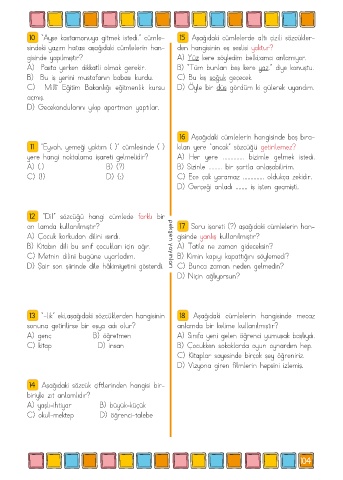 10 "Ayşe kastamonuya gitmek istedi." cümle-
sindeki yazım hatası aşağıdaki cümlelerin han-
gisinde yapılmıştır?
A) Pasta yerken dikkatli olmak gerekir.
B) Bu iş yerini mustafanın babası kurdu.
C) Millî Eğitim Bakanlığı eğitmenlik kursu
açmış.
D) Gecekondularını yıkıp apartman yaptılar.
11 "Eyvah, yemeği yaktım ( )" cümlesinde ( )
yere hangi noktalama işareti gelmelidir?
A) (.) B) (?)
C) (!) D) (:)
12 "Dil" sözcüğü hangi cümlede farklı bir
anlamda kullanılmıştır?
A) Çocuk korkudan dilini ısırdı.
B) Kitabın dili bu sınıf çocukları için ağır.
C) Metnin dilini bugüne uyarladım.
D) Şair son şiirinde dile hâkimiyetini gösterdi.
13 "-lik" eki,aşağıdaki sözcüklerden hangisinin
sonuna getirilirse bir eşya adı olur?
A) genç B) öğretmen
C) kitap D) insan
14 Aşağıdaki sözcük çiftlerinden hangisi bir-
biriyle zıt anlamlıdır?
A) yaşlı-ihtiyar B) büyük-küçük
C) okul-mektep D) öğrenci-talebe
15 Aşağıdaki cümlelerde altı çizili sözcükler-
den hangisinin eş seslisi yoktur?
A) Yüz kere söyledim belki,ama anlamıyor.
B) "Tüm bunları beş kere yaz." diye konuştu.
C) Bu kış soğuk geçecek
D) Öyle bir düş gördüm ki gülerek uyandım.
16 Aşağıdaki cümlelerin hangisinde boş bıra-
kılan yere "ancak" sözcüğü getirilemez?
A) Her yere .............. bizimle gelmek istedi.
B) Sizinle ......... bir şartla anlaşabilirim.
C) Ece çok yaramaz .............. oldukça zekidir.
D) Gerçeği anladı ........ iş işten geçmişti.
17 Soru işareti (?) aşağıdaki cümlelerin han-
gisinde yanlış kullanılmıştır?
A) Tatile ne zaman gideceksin?
B) Kimin kapıyı kapattığını söylemedi?
C) Bunca zaman neden gelmedin?
D) Niçin ağlıyorsun?
18 Aşağıdaki cümlelerin hangisinde mecaz
anlamda bir kelime kullanılmıştır?
A) Sınıfa yeni gelen öğrenci yumuşak başlıydı.
B) Çocukken sokaklarda oyun oynardım hep.
C) Kitaplar sayesinde birçok şey öğreniriz.
D) Vizyona giren filmlerin hepsini izlemiş.
104